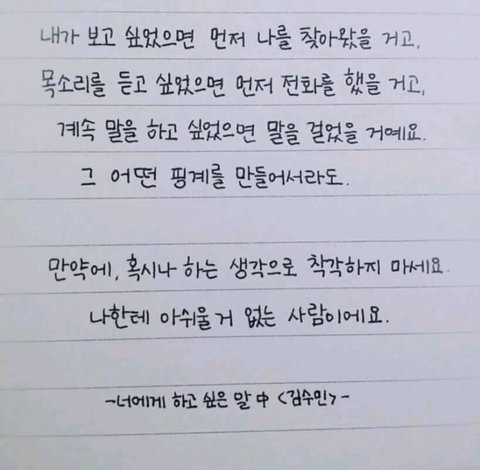 내가 보고 싶었으면 먼저 나를 찾아왔을 거고,
목소리를 듣고 싶었으면 먼저 전화를 했을 거고,
계속 말을 하고 싶었으면 말을 걸었을 거예요.
그 어떤 핑계를 만들어서라도.
만약에, 혹시나 하는 생각으로 착각하지 마세요.
나한테 아쉬울 거 없는 사람이에요.
-너에게 하고 싶은 말 中 <김수민>-